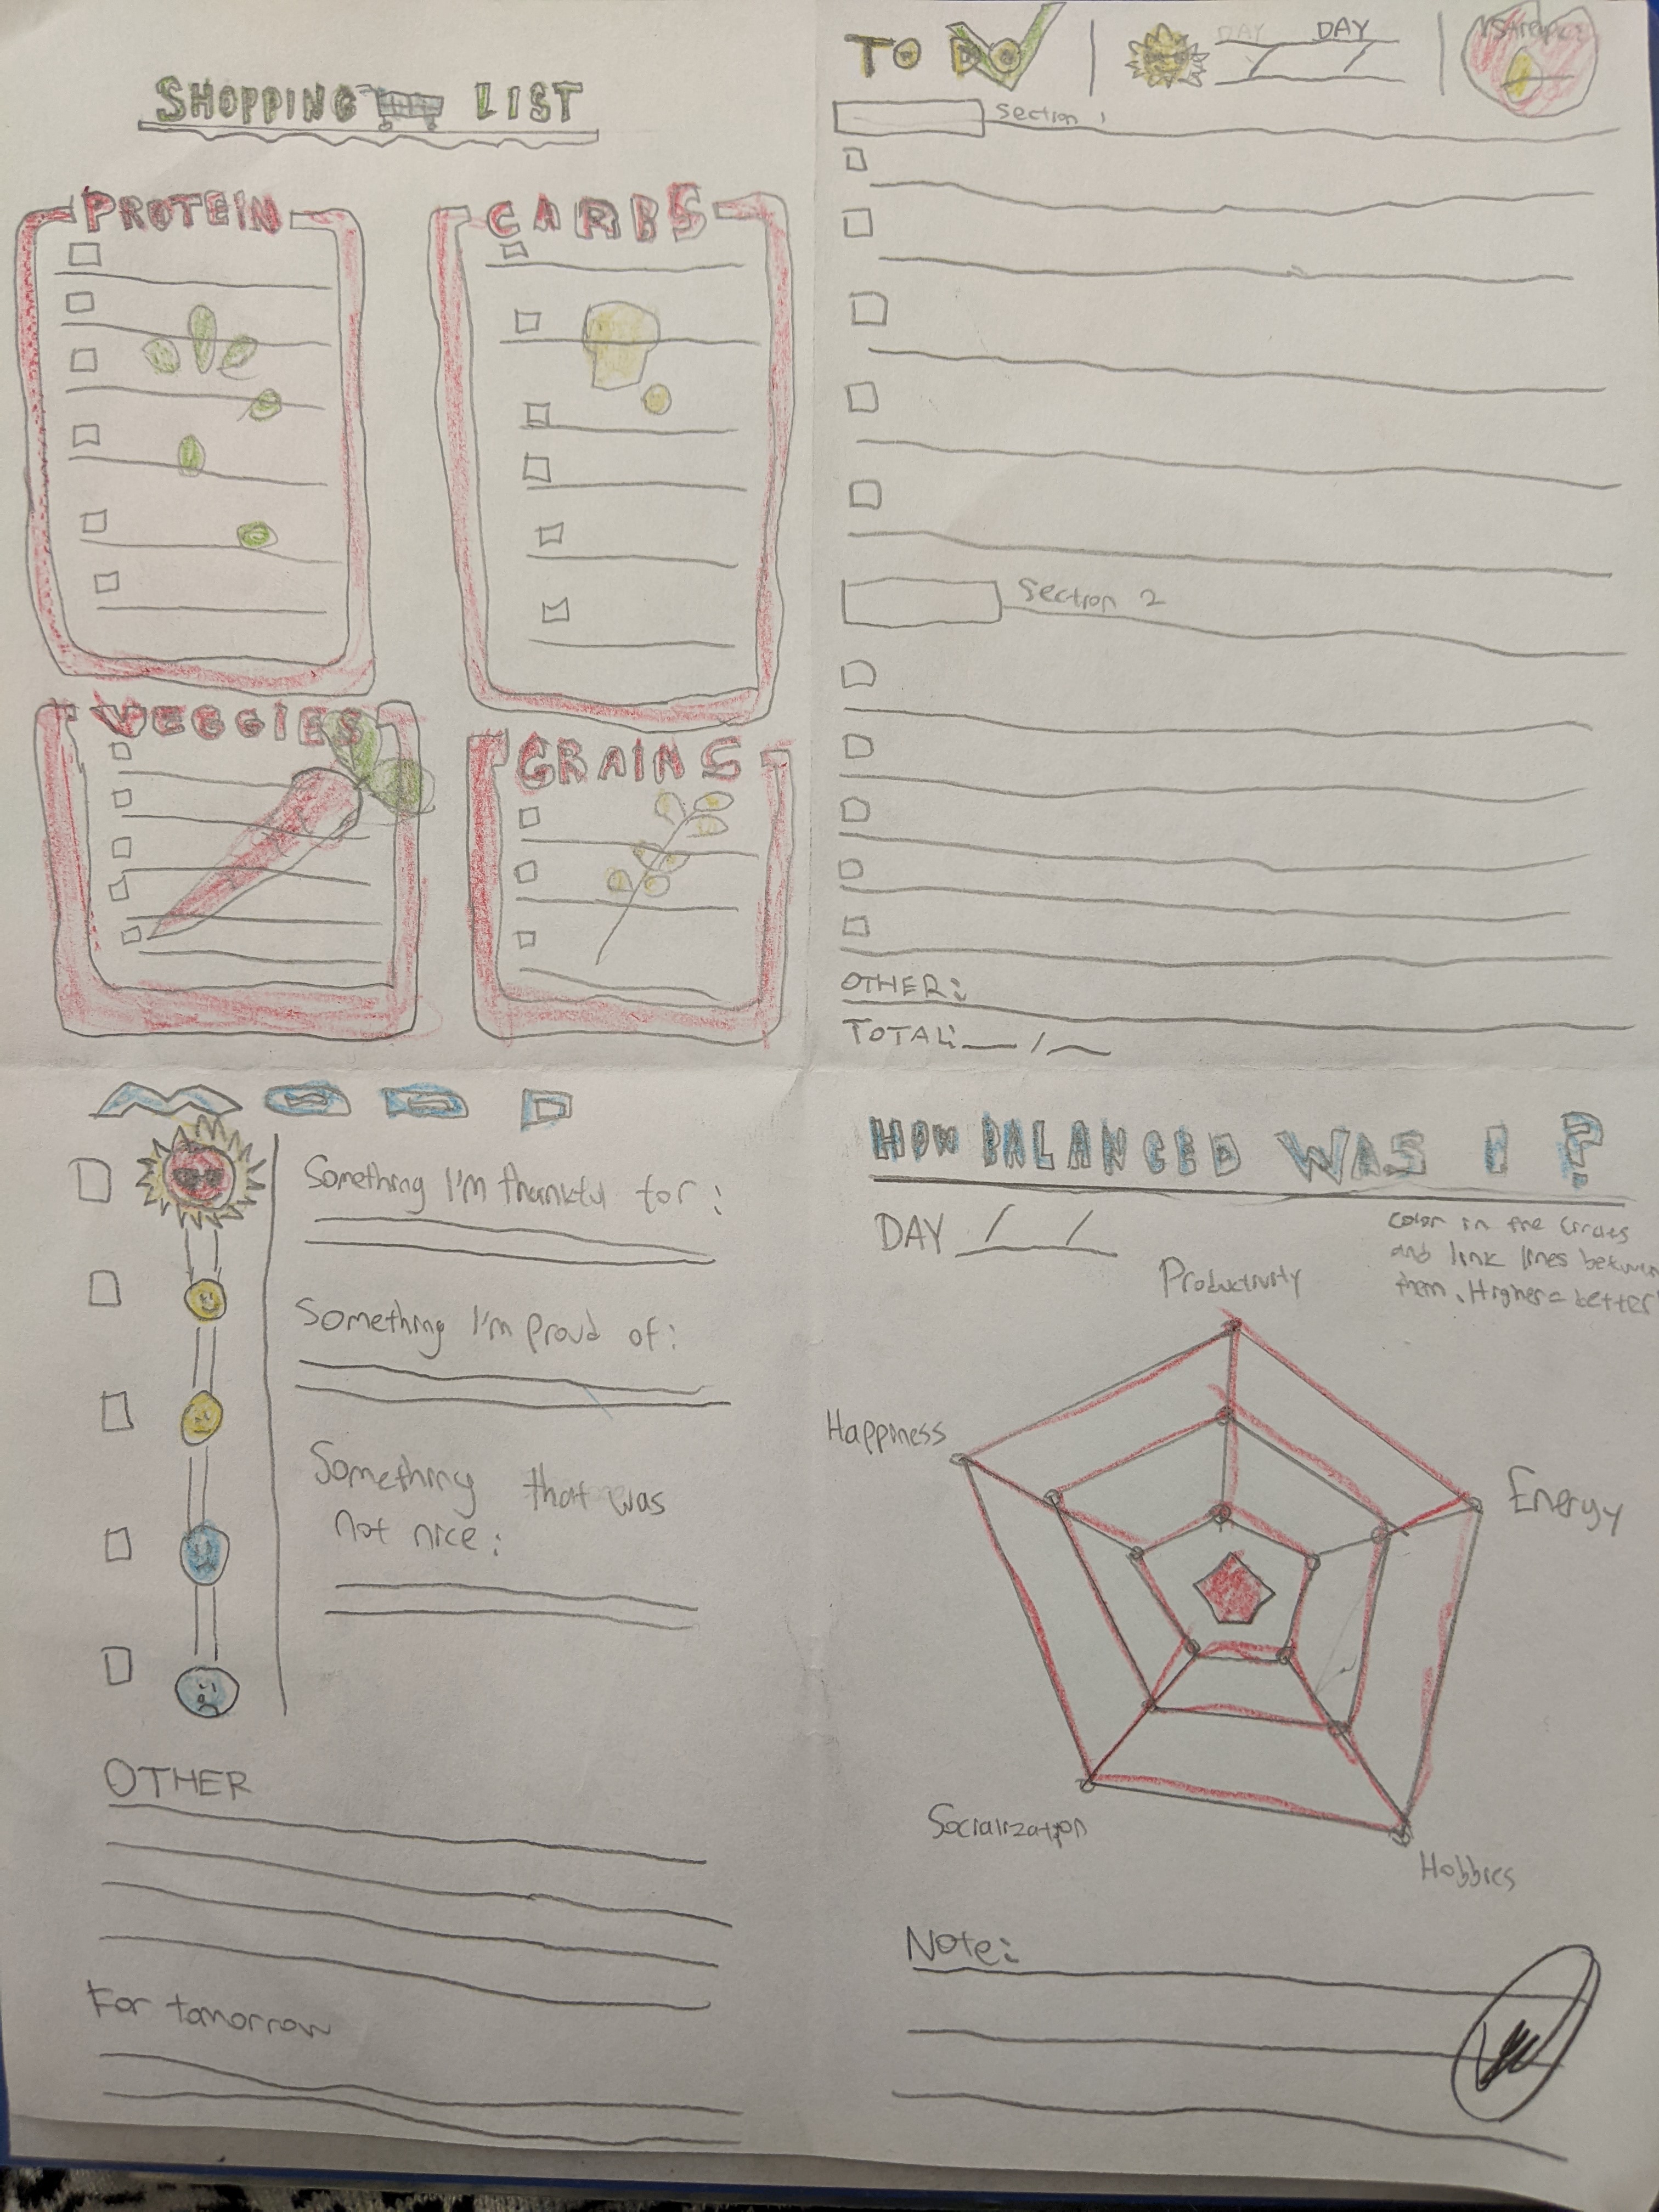 SHOPPING LIST
PROTEIN
CARBS
VEGGIES
GRAINS
TO DO
DAY DAY
/ /
section 1
Section 2
OTHER:
TOTAL: __ / __
MOOD
Something I'm thankful for:
Something I'm proud of:
Something that was
not nice:
OTHER
For tomorrow
HOW BALANCED WAS I ?
DAY / /
Color in the circles
and link lines between
them. Higher = better
Productivity
Happiness
Energy
Socialization
Hobbies
Note: